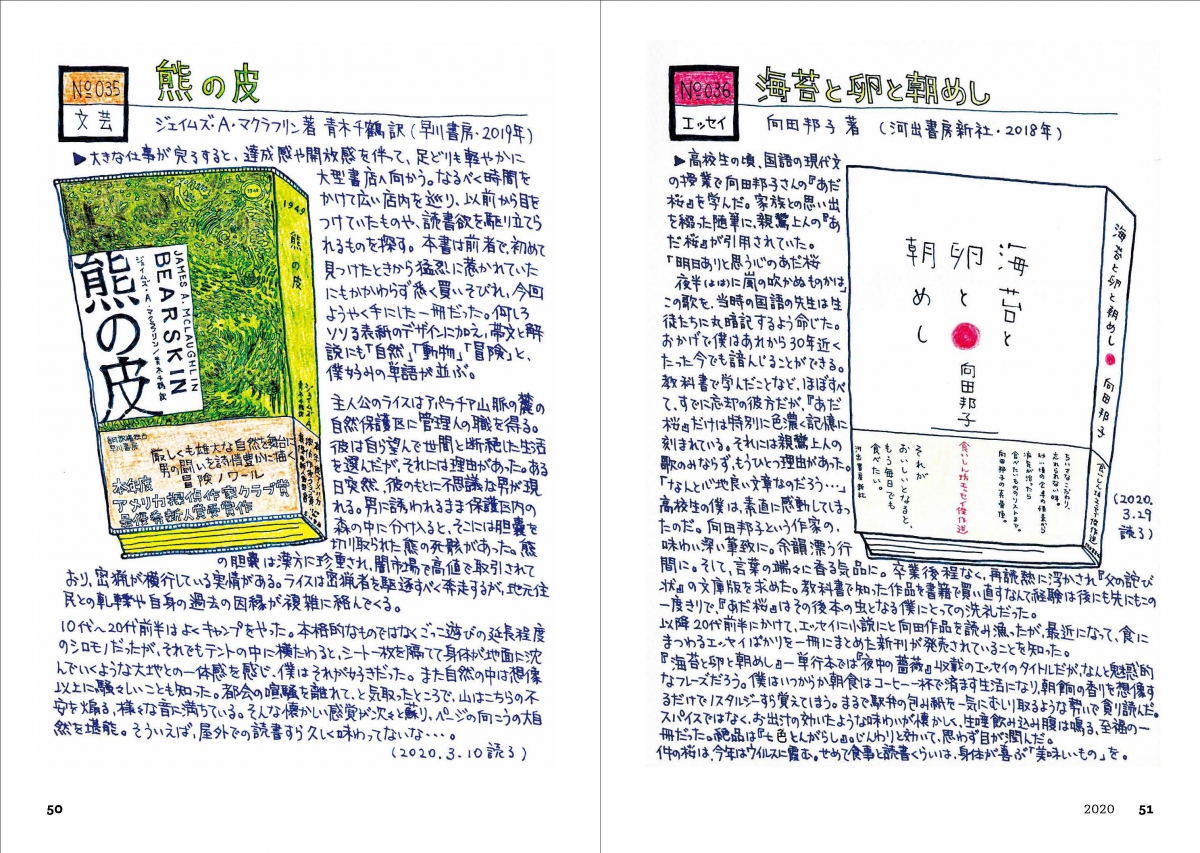 No035
文芸
熊の皮
ジェイムズ・A・マクラフリン著 青木千鶴 訳 (早川書房・2019年)
▶大きな仕事が完了すると、達成感や開放感を伴って、足どりも軽やかに
大型書店へ向かう。なるべく時間を
かけて広い店内を巡り、以前から目を
つけていたものや、読書欲を駆り立てら
れるものを探す。本書は前者で、初めて
見つけたときから猛烈に惹かれていた
にもかかわらず悉く買いそびれ、今回
ようやく手にした一冊だった。何しろ
ソソる表紙のデザインに加え、帯文と解
説にも「自然」「動物」「冒険」と、
僕好みの単語が並ぶ。
主人公のライスはアパラチア山脈の麓の
自然保護区に管理人の職を得る。
彼は自ら望んで世間と断絶した生活
を選んだが、それには理由があった。ある
日突然、彼のもとに不思議な男が現
れる。男に誘われるまま保護区内の
森の中に分け入ると、そこには胆嚢を
切り取られた熊の死骸があった。熊
の胆嚢は漢方に珍重され、闇市場で高値で取引されて
おり、密猟が横行している実情がある。ライスは密猟者を駆逐すべく奔走するが、地元住
民との軋轢や自身の過去の因縁が複雑に絡んでくる。
10代〜20代前半はよくキャンプをやった。本格的なものではなくごっこ遊びの延長程度
のシロモノだったが、それでもテントの中に横たわると、シート一枚を隔てて身体が地面に沈
んでいくような大地との一体感を感じ、僕はそれが好きだった。また自然の中は想像
以上に騒々しいことも知った。都会の喧騒を離れて、と気取ったところで、山はこちらの不
安を煽る、様々な音に満ちている。そんな懐かしい感覚が次々と蘇り、ページの向こうの大自
然を堪能。そういえば、屋外での読書すら久しく味わってないな…。
(2020.3.10読了)
JAMES A. MCLAUGHLIN
BEARSKIN
ジェイムズ・A・マクラフリン/青木千鶴 訳
熊の皮
1949
熊の皮
早川書房
厳しくも雄大な自然を舞台に
男の闘いを詩情豊かに描く
冒険ノワール
本年度
アメリカ探偵作家クラブ賞
最優秀新人賞受賞作
50
No036
エッセイ
海苔と卵と朝めし
向田邦子 著 (河出書房新社・2018年)
▶高校生の頃、国語の現代文
の授業で向田邦子さんの『あだ
桜』を学んだ。家族との思い出
を綴った随筆に、親鸞上人の『あ
だ桜』が引用されていた。
「明日ありと思う心のあだ桜
夜半は嵐の吹かぬものかは」
この歌を、当時の国語の先生は生
徒たちに丸暗記するよう命じた。
おかげで僕はあれから30年近く
たった今でも諳んじることができる。
教科書で学んだことなど、ほぼすべ
て、すでに忘却の彼方だが、『あだ
桜』だけは特別に色濃く記憶に
刻まれている。それには親鸞上人の
歌のみならず、もうひとつ理由があった。
「なんと心地良い文章なのだろう…」
高校生の僕は、素直に感動してしまっ
たのだ。向田邦子という作家の、
味わい深い筆致に。余韻漂う行
間に。そして、言葉の端々に香る気品に。卒業後程なく、再読熱に浮かされ『父の詫び
状』の文庫版を求めた。教科書で知った作品を書籍で買い直すなんて経験は後にも先にもこの
一度きりで、『あだ桜』はその後本の虫となる僕にとっての洗礼だった。
以降20代前半にかけて、エッセイに小説にと向田作品を読み漁ったが、最近になって、食に
まつわるエッセイばかりを一冊にまとめた新刊が発売されていることを知った。
『海苔と卵と朝めし』―単行本では『夜中の薔薇』収載のエッセイのタイトルだが、なんと魅惑的
なフレーズだろう。僕はいつからか朝食はコーヒー一杯で済ます生活になり、朝餉の香りを想像す
るだけでノスタルジーすら覚えてしまう。まるで駅弁の包み紙を一気にむしり取るような勢いで貪り読んだ。
スパイスではなく、お出汁の効いたような味わいが懐かしく、生唾飲み込み腹は鳴る、至福の一
冊だった。絶品は『七色とんがらし』。じんわりと効いて、思わず目が潤んだ。
件の桜は、今年はウイルスに霞む。せめて食事と読書くらいは、身体が喜ぶ「美味いもの」を。
(2020.
3.29
読了)
海苔と
卵と
朝めし
向田邦子
それが
おいしいとなると、
もう毎日でも
食べたい。
食いしん坊エッセイ傑作選
河出書房新社
海苔と卵と朝めし 向田邦子
2020
51